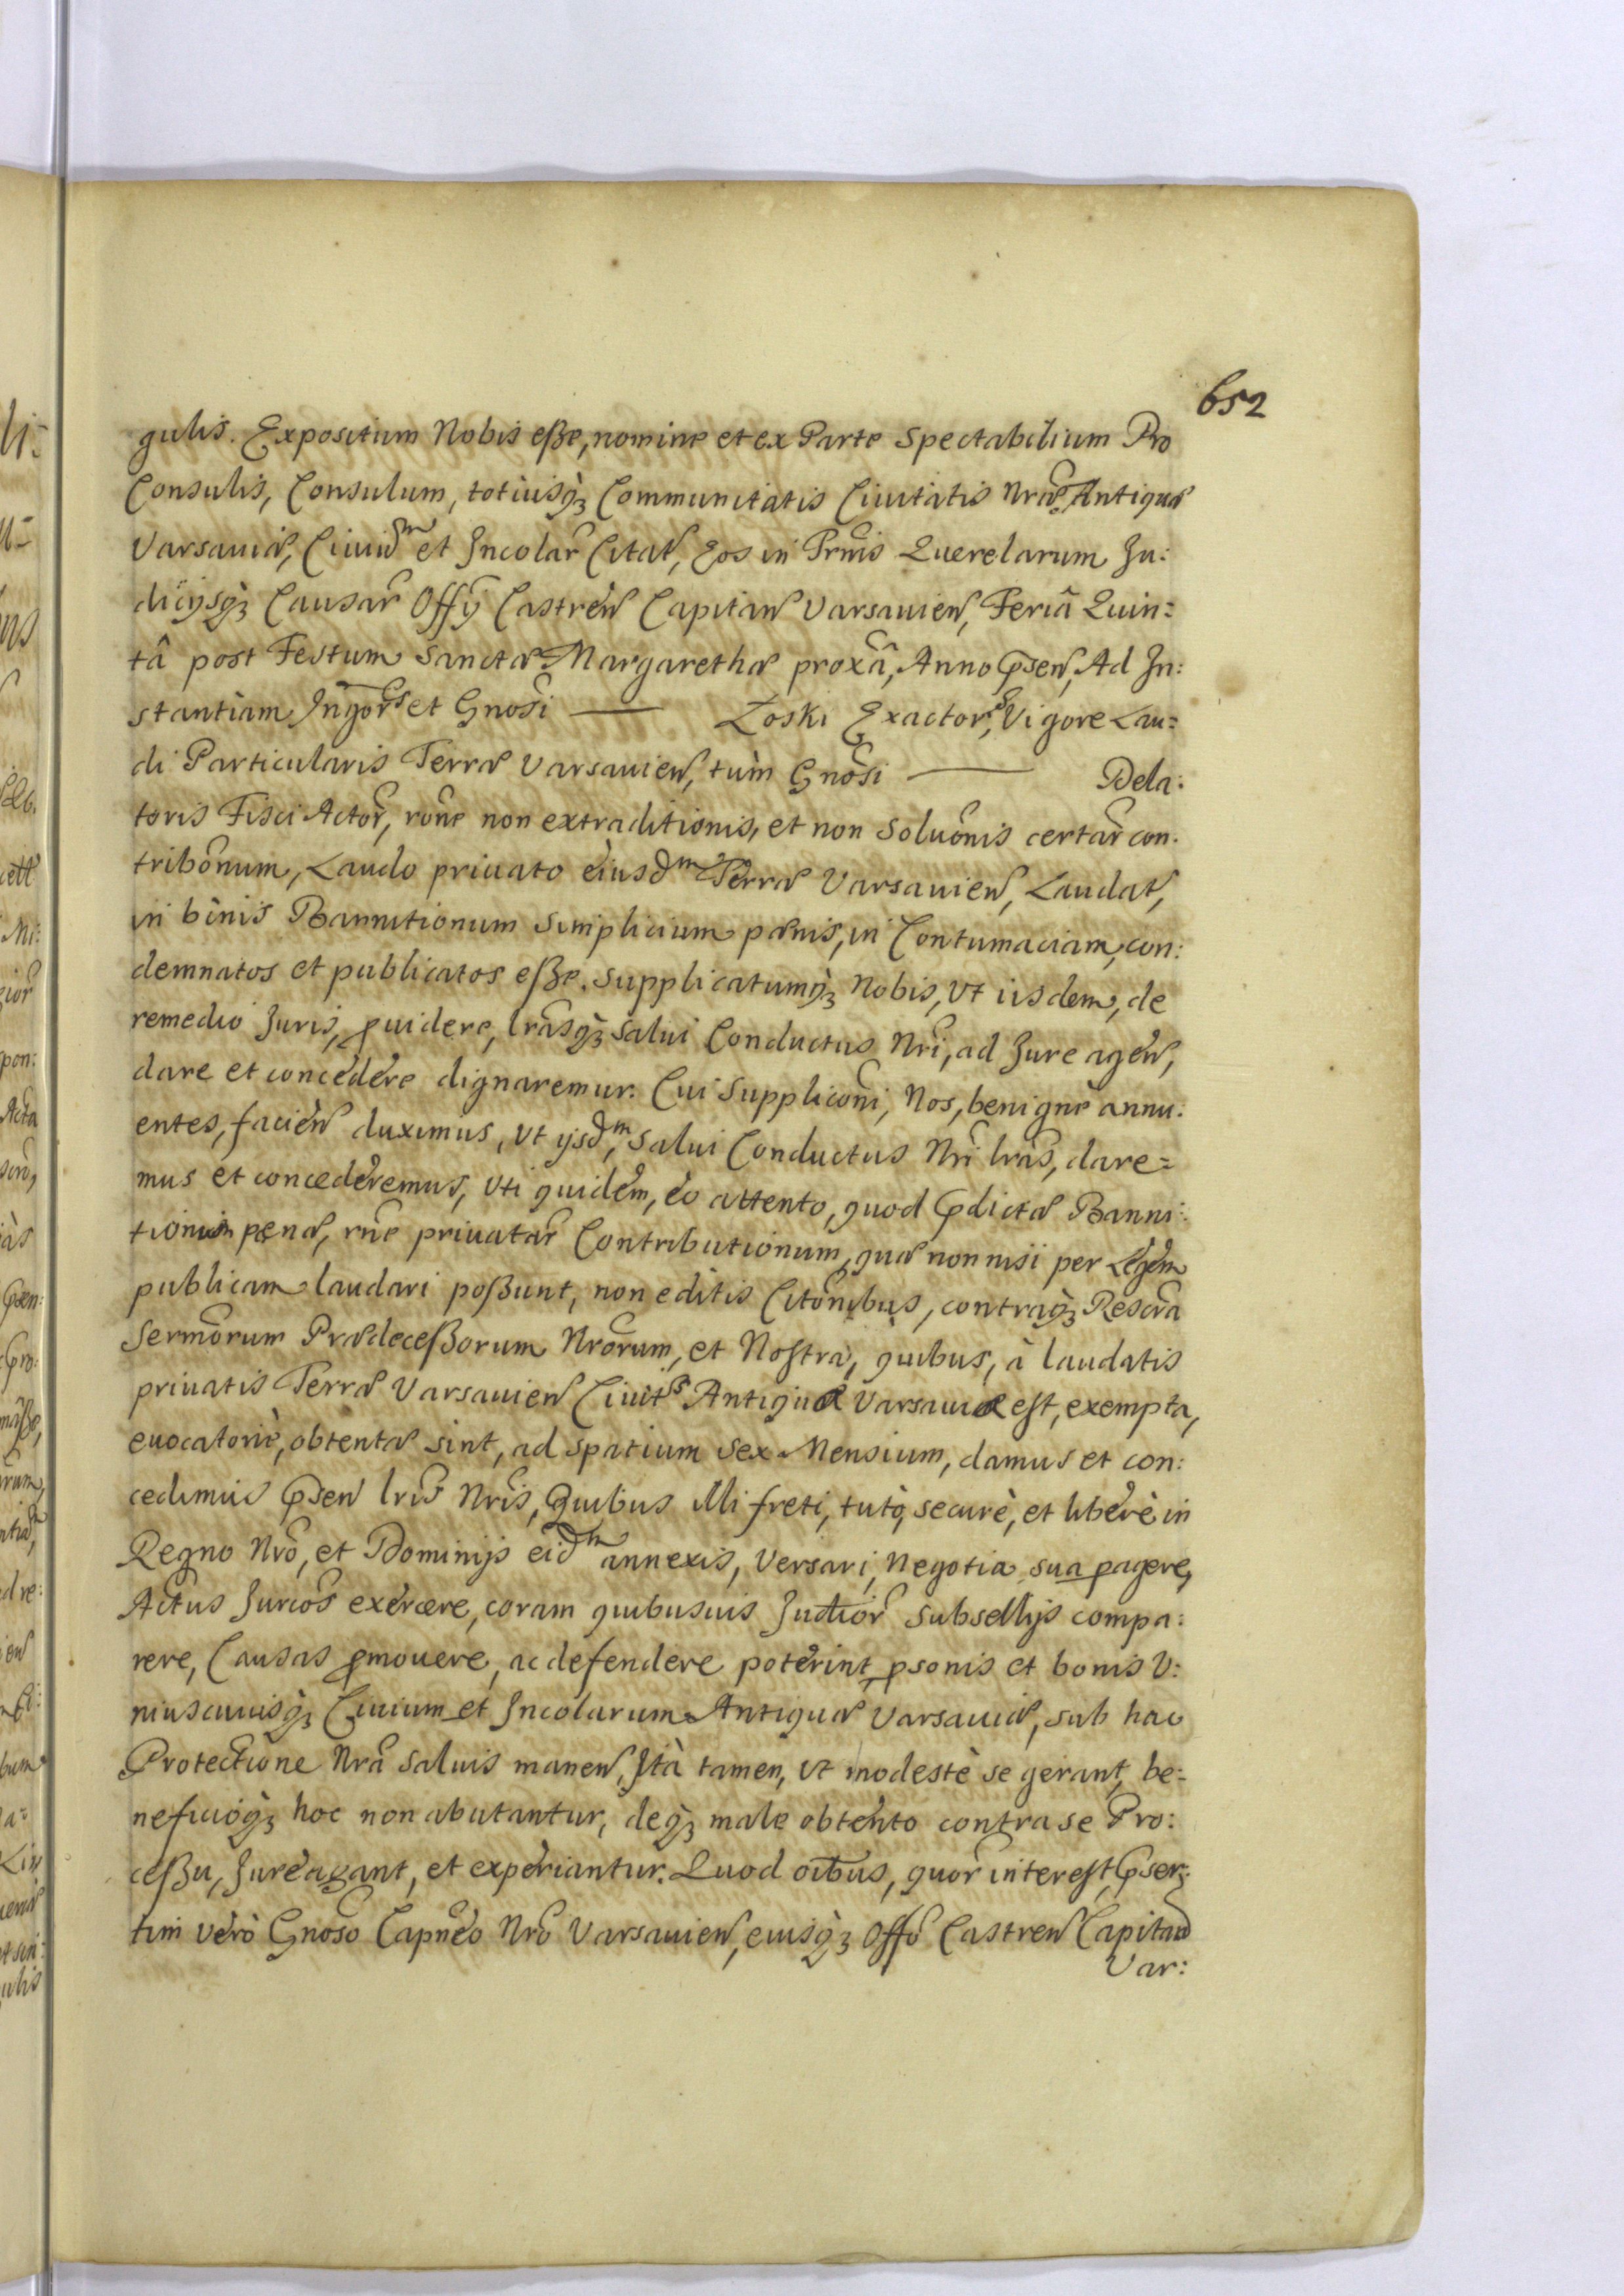 652
gulis. Expositum Nobis eße, nomine et ex Parte Spectabilium Pro
Consulis, Consulum, totiusq̀ꝫ Communitatis Ciuitatis Nræ Antiquæ
Varsauiæ, Ciuiũ et Incolar̃ Citat̃, Eos in Prmis Querelarum Ju:
dicijsq̀ꝫ Causar̃ Offÿ Castren̄ Capitan̄ Varsauien̄, Feriâ Quin=
tâ post Festum Sanctæ Margarethæ proxâ, Anno p̃sen̄, Ad In:
stantiam Ingor̃ et Gnosi —— Łoski Exactor̃, Vigore Lau=
di Particularis Terræ Varsauien̄, tùm Gnosi —— Dela:
toris Fisci Actor̃, rōne non extraditionis, et non Soluōnis certar̃ con.
tribōnum, Laudo priuato eiusd̃m Terræ Varsauien̄, Laudat̃,
in binis Bannitionum Simplicium pœnis, in Contumaciam, con:
demnatos et publicatos eße. Supplicatumq̀ꝫ Nobis, Vt iisdem, de
remedio Juris, ꝓuidere, lrãsq̀ꝫ Salui Conductus Nri, ad Jure agen̄,
dare et concedere dignaremur. Cui Suppliconi, Nos, benignè annu:
entes, facien̄ duximus, Vt ijsd̃m, Salui Conductus Nri lrãs, dare=
mus et concederemus, Vti quidem, eo attento, quod p̃dictæ Banni:
tionum pœnæ, rñe priuatar̃ Contributionum, quæ non nisi per Legem
publicam laudari poßunt, non editis Citōnibus, contraq̀ꝫ Rescra
Sermorum Prædeceßorum Nrorum, et Nostra, quibus, à laudatis
priuatis Terræ Varsauien̄ Ciuits Antiquæ Varsauiæ est, exempta,
euocatoriè, obtentæ sint, ad spatium Sex Mensium, damus et con:
cedimus p̃sen̄ lris Nris, Quibus illi freti, tutò, securè, et liberè in
Regno Nro, et Dominijs eid̃m annexis, Versari, Negotia sua ꝑagere,
Actus Jurcos exercere, coram quibusuis Judicior̃ Subsellijs compa:
rere, Causas ꝓmouere, ac defendere poterint, ꝑsonis et bonis V:
niuscuiusq̀ꝫ Ciuium et Incolarum Antiquæ Varsauiæ, sub hac
Protectione Nrâ saluis manen̄. Ità tamen, Vt modestè se gerant, be=
neficioq̀ꝫ hoc non abutantur, deq̀ꝫ male obtento contra se Pro:
ceßu, Jure agant, et experiantur. Quod oibus, quor̃ interest, p̃ser:
tim verò Gnoso Capneo Nro Varsauien̄, eiusq̀ꝫ Offo Castren̄ Capitan̄
Var: